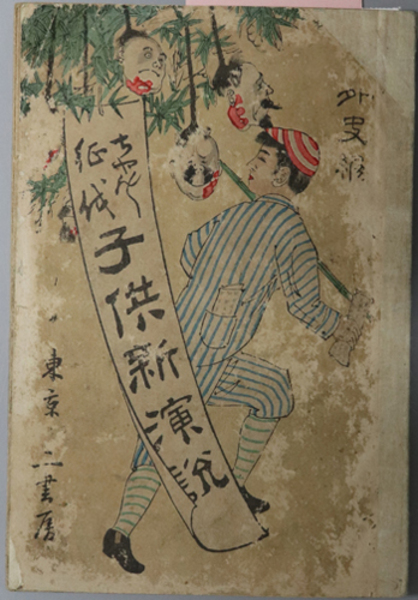 外史
ちやん〳〵
征伐
子供新演説
東京 二書房